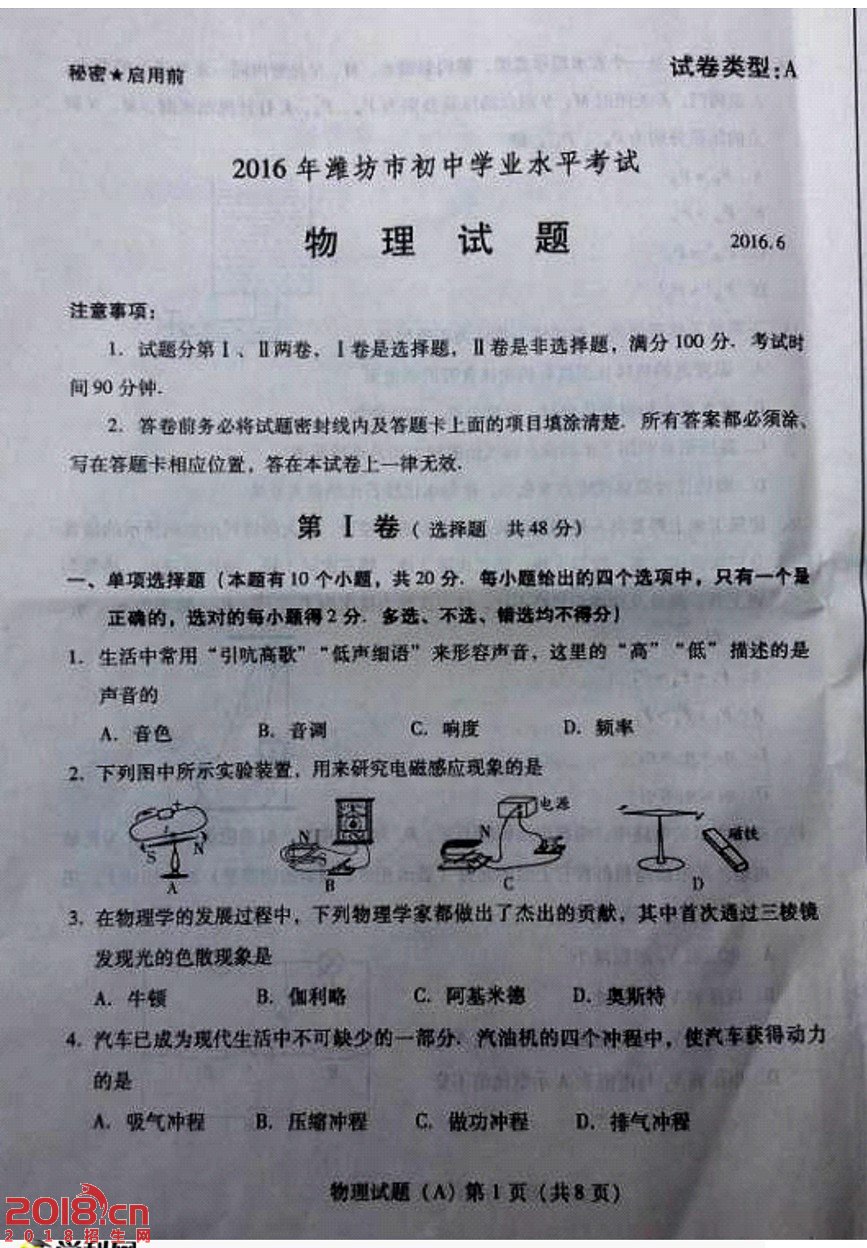 秘密★启用前
试卷类型:A
2016年潍坊市初中学业水平考试
物 理 试 题
2016.6
注意事项:
1. 试题分第Ⅰ、Ⅱ两卷,Ⅰ卷是选择题,Ⅱ卷是非选择题,满分100分.考试时
间90分钟.
2. 答卷前务必将试题密封线内及答题卡上面的项目填涂清楚. 所有答案都必须涂、
写在答题卡相应位置,答在本试卷上一律无效.
第Ⅰ卷(选择题 共48分)
一、单项选择题(本题有10个小题,共20分. 每小题给出的四个选项中,只有一个是
正确的,选对的每小题得2分. 多选、不选、错选均不得分)
1. 生活中常用“引吭高歌”“低声细语”来形容声音,这里的“高”“低”描述的是
声音的
A. 音色 B. 音调 C. 响度 D. 频率
2. 下列图中所示实验装置,用来研究电磁感应现象的是
S N A
N B
电源 N C
磁铁 D
3. 在物理学的发展过程中,下列物理学家都做出了杰出的贡献,其中首次通过三棱镜
发现光的色散现象是
A. 牛顿 B. 伽利略 C. 阿基米德 D. 奥斯特
4. 汽车已成为现代生活中不可缺少的一部分. 汽油机的四个冲程中,使汽车获得动力
的是
A. 吸气冲程 B. 压缩冲程 C. 做功冲程 D. 排气冲程
物理试题(A)第1页(共8页)
2018.cn
2018招生网